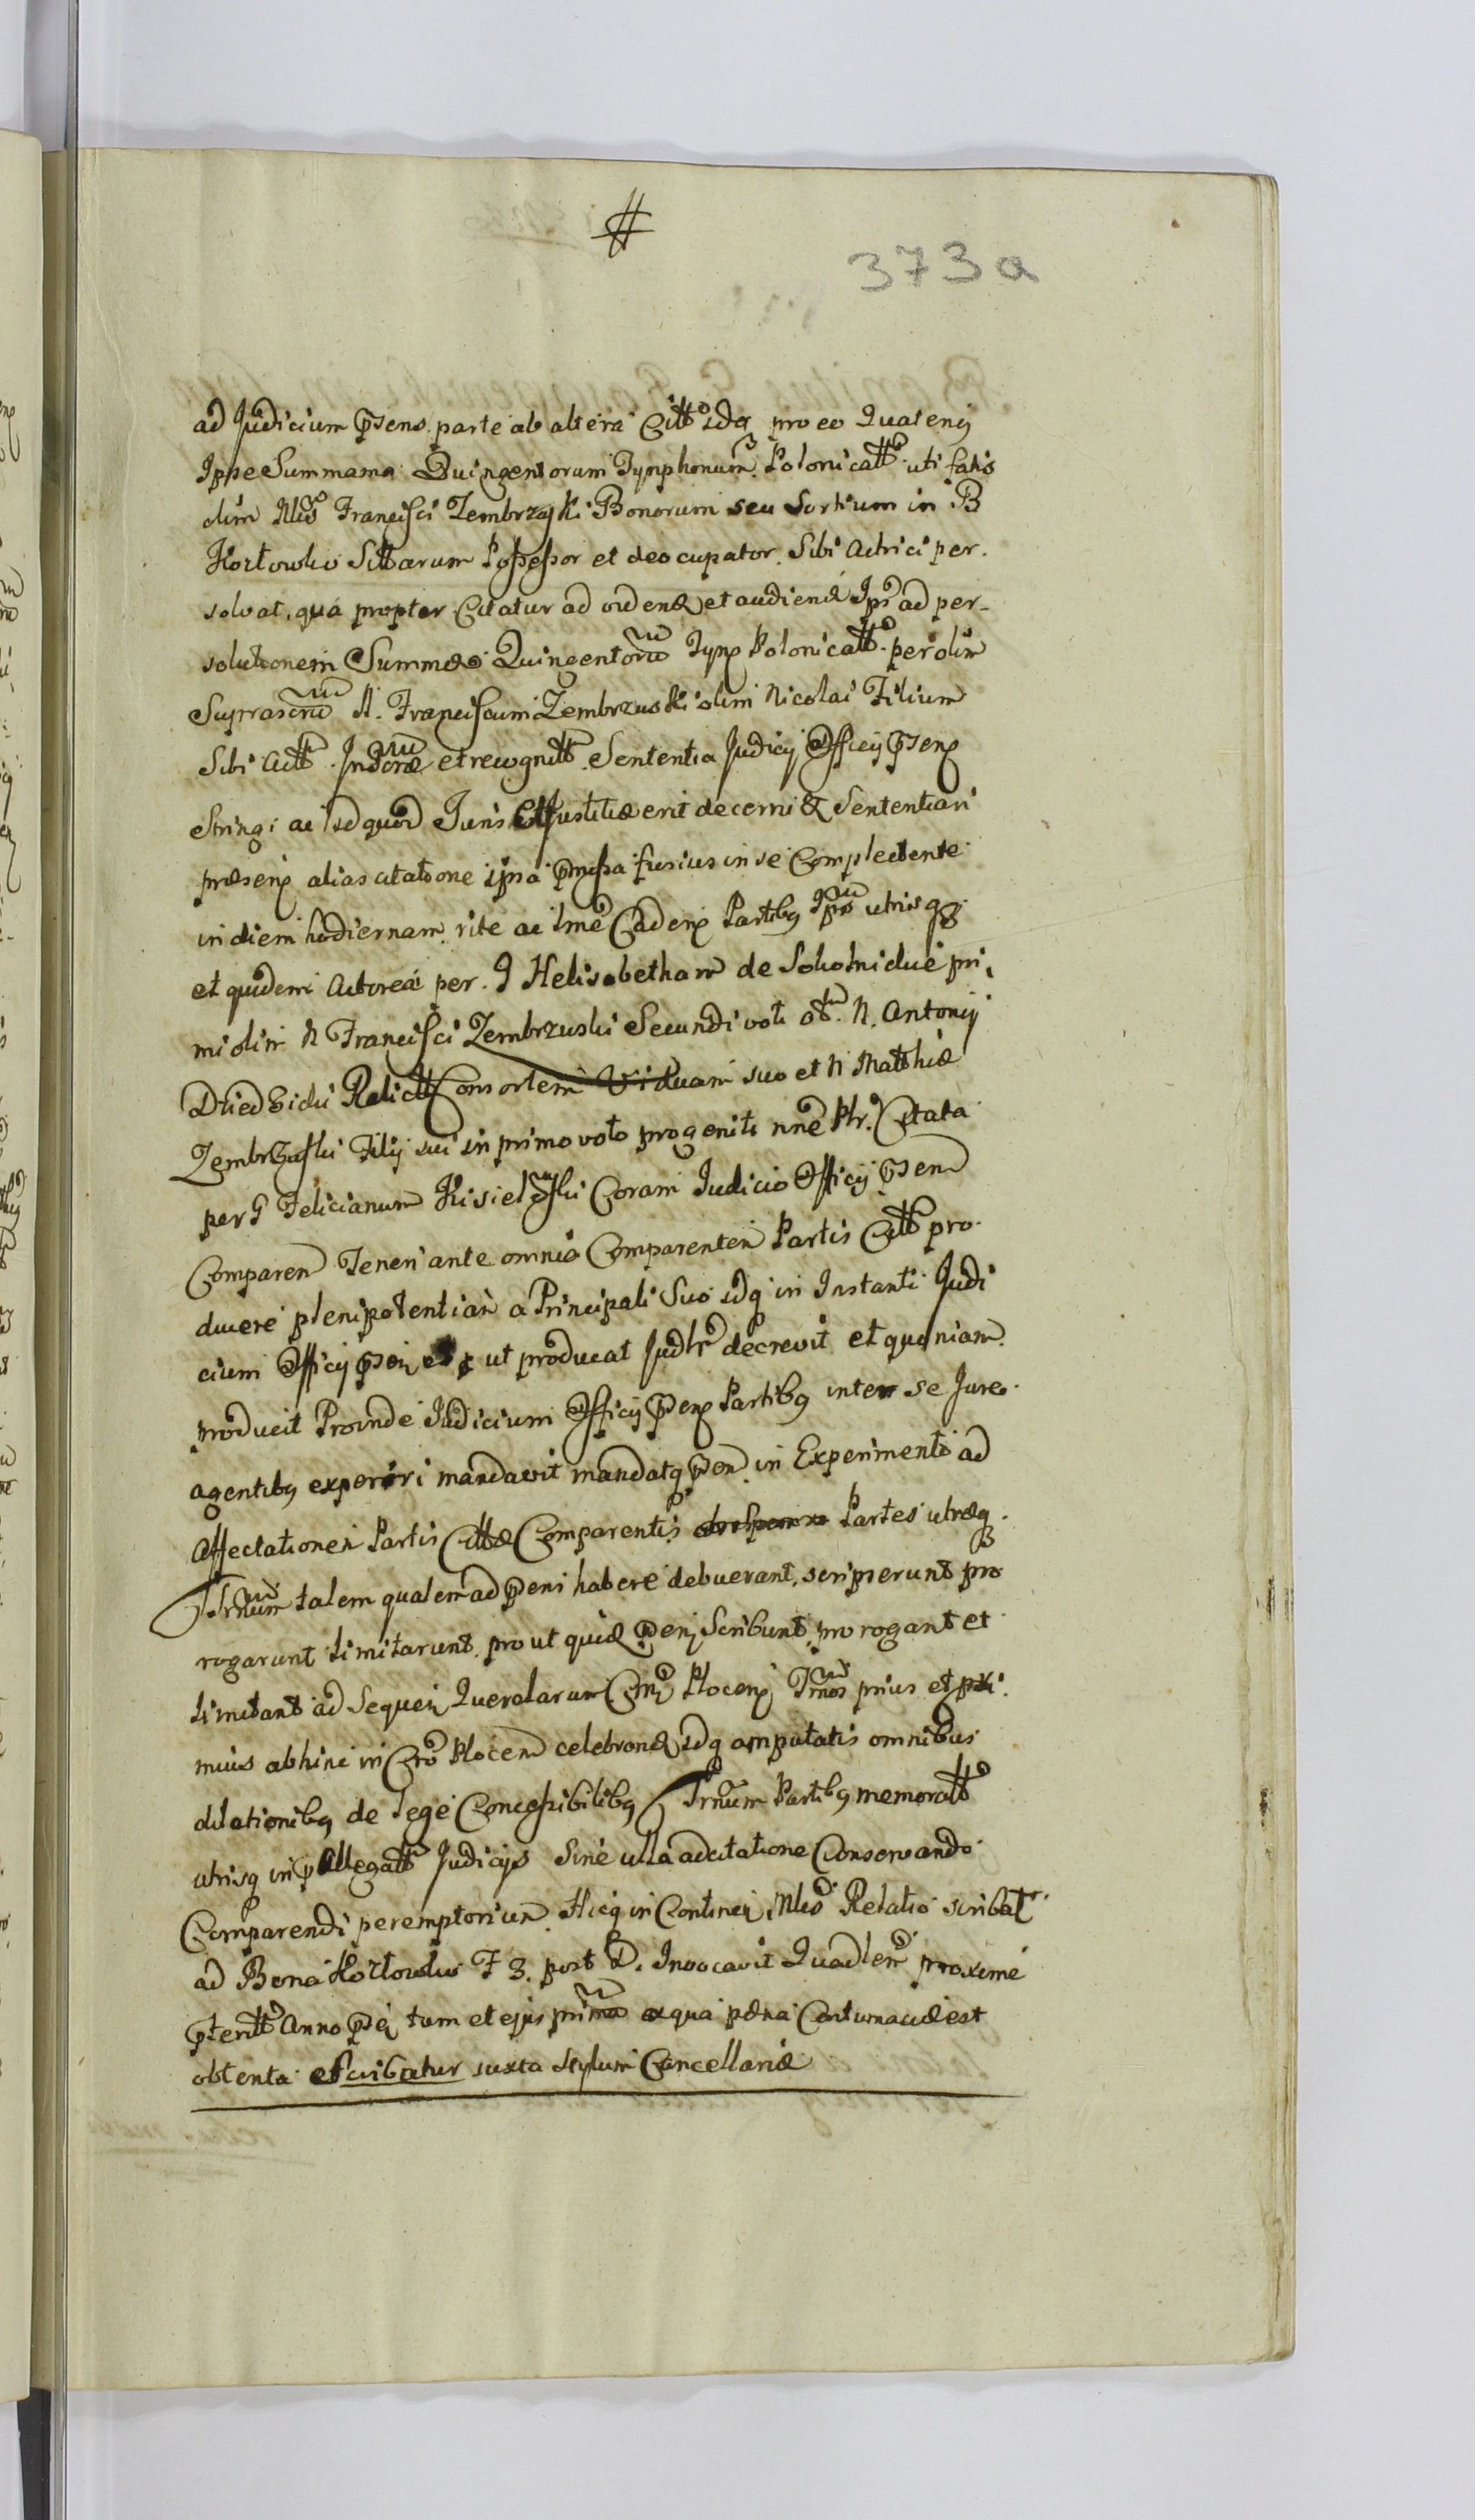 #
373a
ad Judicium Psens parte ab altera Citto idq pro eo Quateny
Ipse Summama Quingentorum Tynphonum Polonicatt uti fatis
olim Mltris Francisci Zembrzuski Bonorum seu Sortium in B
Kozlowko Sittarum Possessor et deocupator Sibi actrici per
solvat, qua propter Citatur ad viden et audien Ipse ad per-
solutionem Summae Quingentoru Tynp Polonicatt per olim
Suprascrm N. Franciscum Zembrzuski olim Nicolai Filium
Sibi Actt et recognitt Sententia Judicij Officij Psenp
Stringi ac id quod Juris et Justitiae erit decerni & Sententiari
praesenp alias citatione ipsa Pmissa fusius in se Complectente
in diem hodiernam rite ac ltme Cadenp Partibq Ipis utrisq
et quidem Actorea per G Helisabetham de Sokolnickie pri
mi olim N Francisci Zembrzuski Secundi voti N. Antonij
Dziedzicki Relictt Consortem Viduam suo et N Mathiae
Zembrzuski Filij sui in primo voto progeniti nne Ptr. Citata
per G Felicianum Kisielewski Coram Judicio Officij Psen
Comparen Teneri ante omnia Comparentem Partis Citt pro
ducere plenipotentiam a Principali Suo idq in Instanti Judi
cium Officij Psen ut producat Judlr decrevit et quoniam
producit Proinde Judicium Officij Psenp Partibq inter se Jure
agentibq experiri mandavit mandatq Psen in Experimento ad
Affectationem Partis Cittae Comparentis Partes utraeq
Trnum talem qualem ad Psens habere debuerant, scripserunt pro
rogarunt limitarunt prout quidem Psenp Scribunt prorogant et
limitant ad Sequen Querelarum Plocenp Trnos prius et pxi
mius abhinc in Cro Plocen celebran idq amputatis omnibus
dilationibq de lege Concessibilibq Trnum Partibq memoratt
utrisq in pallegatt Judicijs Sine ulla adcitatione Conservando
Comparendi peremptorium Hicq in Continen Mltis Relatio scribatr
ad Bona Kozlowko F 3. post D. Invocavit Quadlem proxime
pteritt Anno Psen tum et ejus prima ex qua paena Contumaciae est
obtenta escribatur juxta stylum Cancellariae